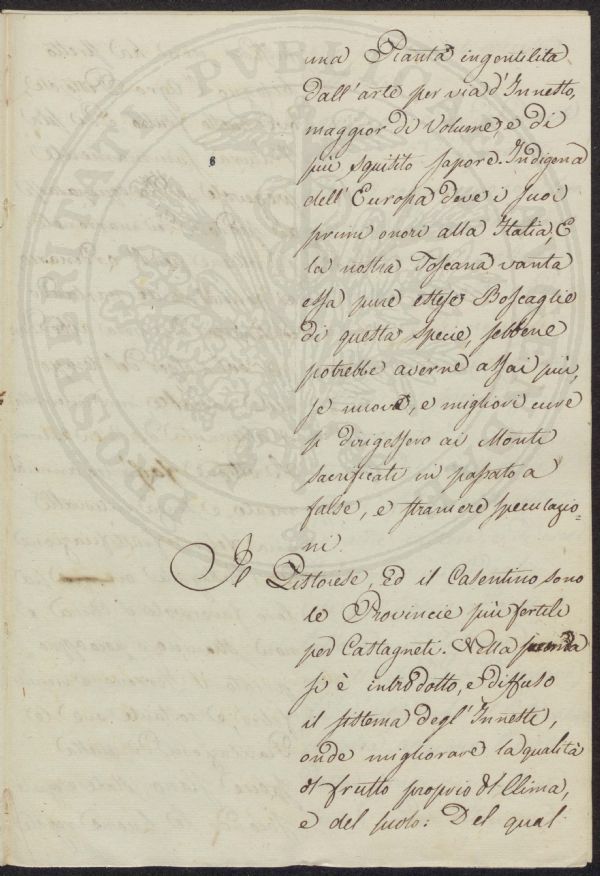 una Pianta ingentilita
dall'arte per via d'Innesto,
maggior di Volume, e di
più squisito sapore. Indigena
dell'Europa deve i suoi
primi onori alla Italia, E
la nostra Toscana vanta
essa pure estese Boscaglie
di questa specie, sebbene
potrebbe averne assai più,
se nuove, e migliori cure
si dirigessero ai Monti
sacrificati in passato a
false, e straniere speculazio=
ni.
Il Pistoiese, Ed il Casentino sono
le Provincie più fertili
per Castagneti. Nella
si è introdotto, e diffuso
il sistema degl'Innesti,
onde migliorare la qualità
del frutto proprio del Clima,
e del suolo: Del qual
PROSPERITATI PUBLICAE